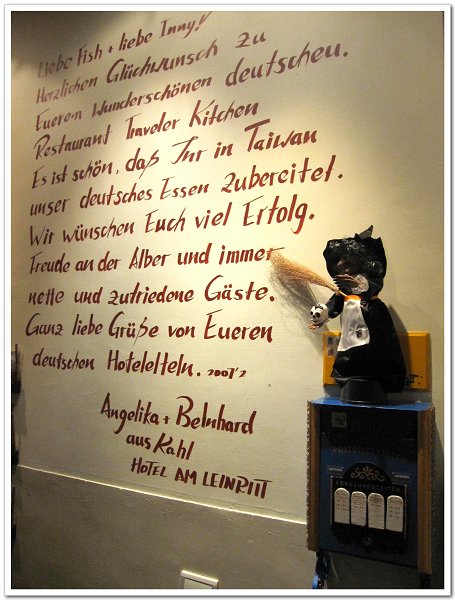 Liebe Fish + liebe Inny!
Herzlichen Glückwunsch zu
Eueren wunderschönen deutschen.
Restaurant Traveler Kitchen
Es ist schön, daß Ihr in Taiwan
unser deutsches Essen zubereitet.
Wir wünschen Euch viel Erfolg.
Freude an der Alber und immer
nette und zufriedene Gäste.
Ganz liebe Grüße von Eueren
deutschen Hotelelteln. 2007'2
Angelika + Belnhard
aus Kahl
HOTEL AM LEINRITT